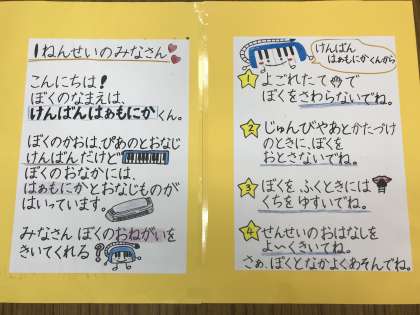 1ねんせいのみなさん
こんにちは!
ぼくのなまえは、
けんばんはぁもにかくん。
ぼくのかおは、ぴあのとおなじ
けんばんだけど
ぼくのおなかには、
はぁもにかとおなじものが
はいっています。
みなさん ぼくのおねがいを
きいてくれる
けんばん
はぁもにかくんから
1 よごれたてで
ぼくをさわらないでね。
2 じゅんびやあとかたづけ
のときに、ぼくを
おとさないでね。
3 ぼくを ふくときには
くちをゆすいでね。
4 せんせいのおはなしを
よ〜くきいてね。
さぁ、ぼくとなかよくあそんでね。